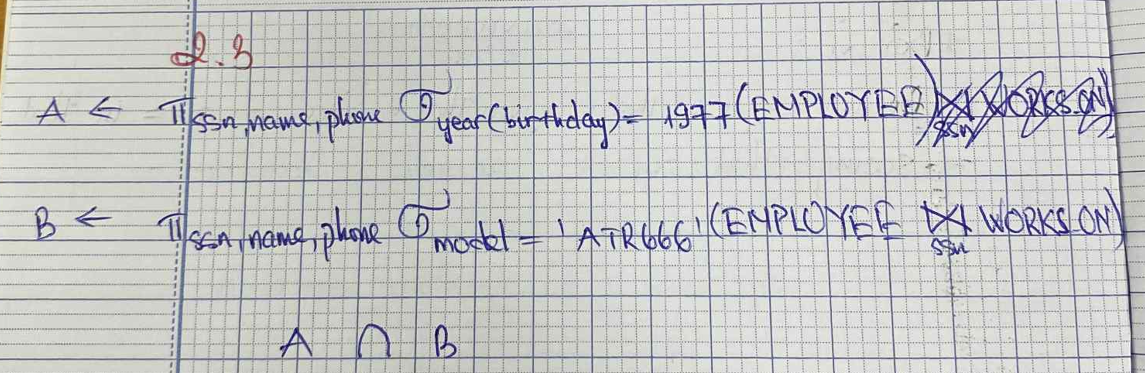 2.3
A ← π ssn, name, phone σ year(birthday) = 1977 (EMPLOYEE) ⋈ ssn WORKS_ON)
B ← π ssn, name, phone σ model = 'ATR666' (EMPLOYEE ⋈ ssn WORKS_ON)
A ∩ B